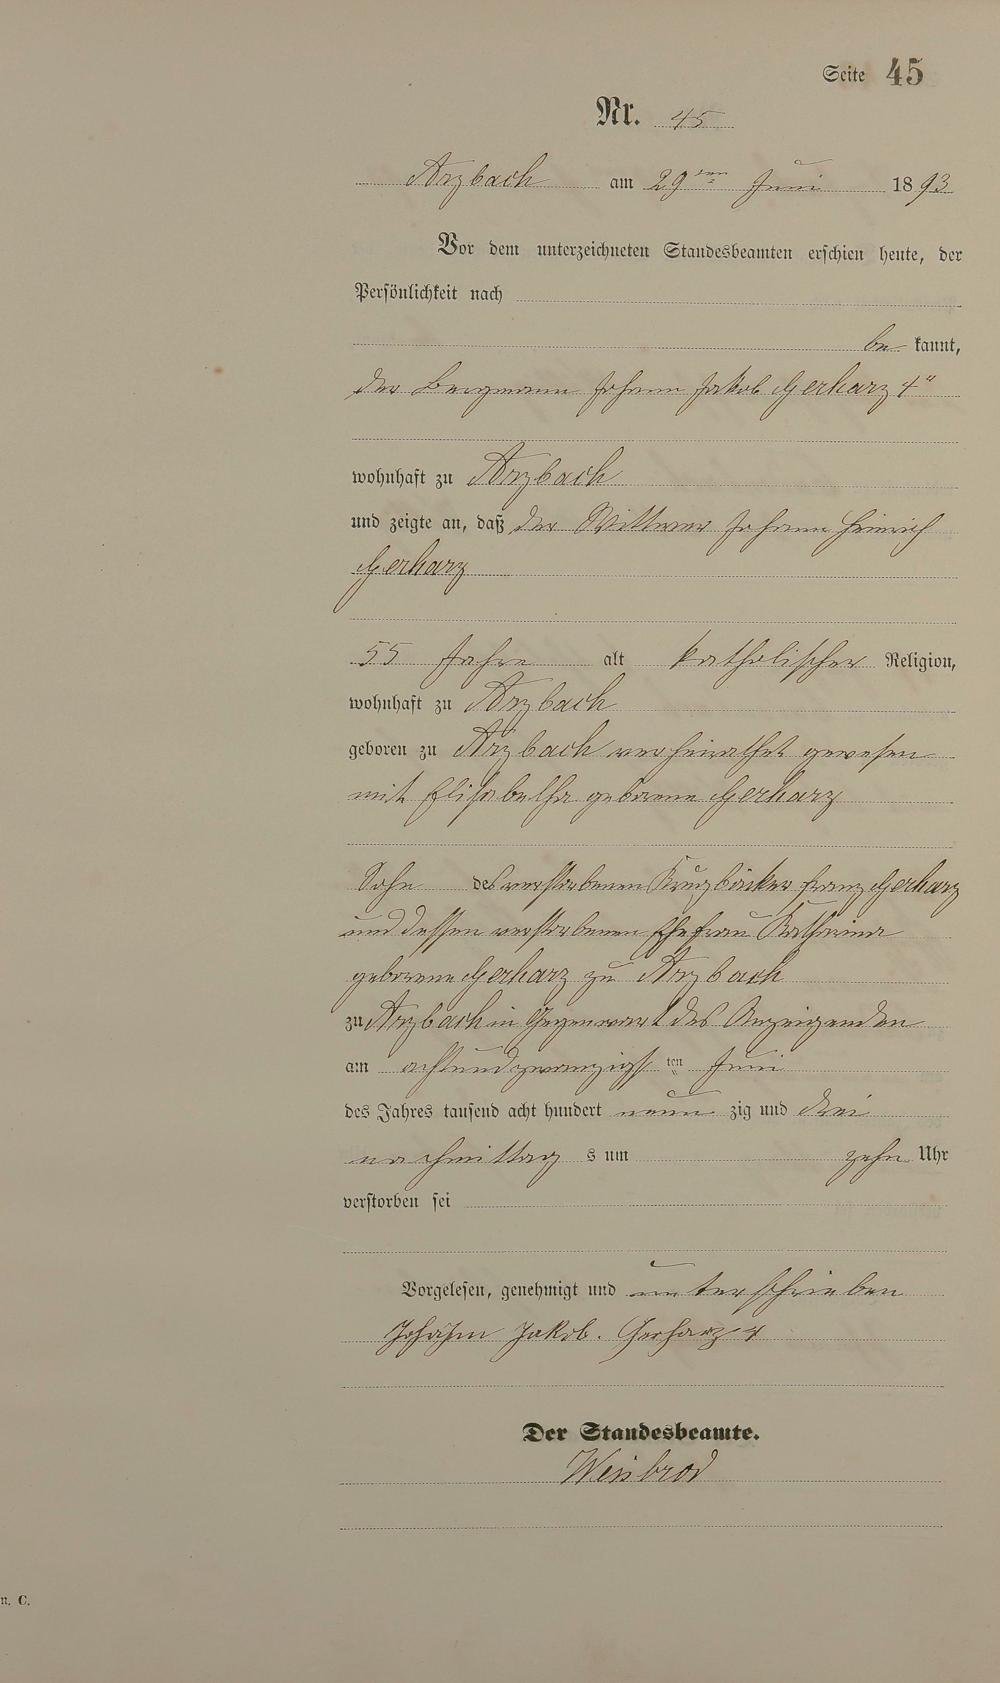 Seite 45
Nr. 45
Arzbach am 29ten Juni 1893
Vor dem unterzeichneten Standesbeamten erschien heute, der
Persönlichkeit nach
be kannt,
der Bergmann Johann Jakob Gerharz 4"
wohnhaft zu Arzbach
und zeigte an, daß der Wittwer Johann Heinrich
Gerharz
55 Jahre alt katholischer Religion,
wohnhaft zu Arzbach
geboren zu Arzbach verheirathet gewesen
mit Elisabetha geborene Gerharz
Sohn des verstorbenen Krugbäcker Franz Gerharz
und dessen verstorbenen Ehefrau Katharina
geborene Gerharz zu Arzbach
zu Arzbach in Gegenwart des Anzeigenden
am achtundzwanzigst ten Juni
des Jahres tausend acht hundert neun zig und drei
nachmittag s um zehn Uhr
verstorben sei
Vorgelesen, genehmigt und unterschrieben
Johann Jakob. Gerharz 4
Der Standesbeamte.
Weisbrod
n. C.